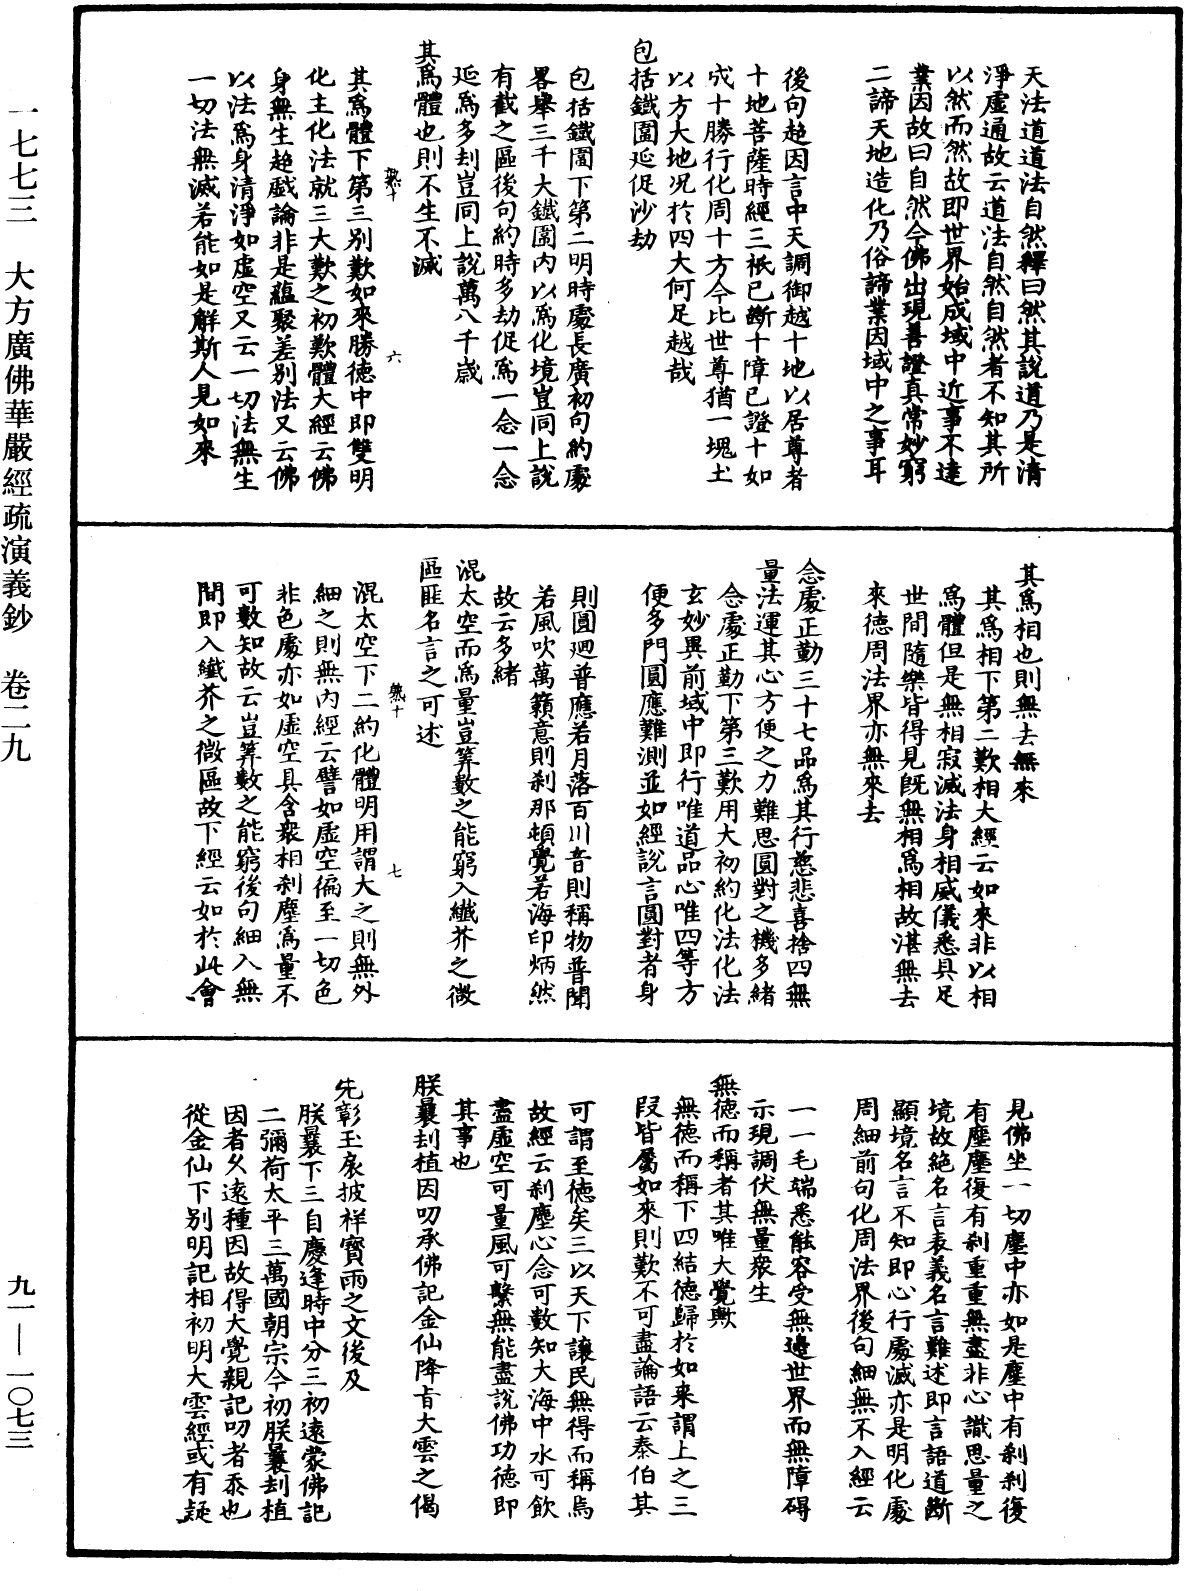 一七七三　大方廣佛華嚴經疏演義鈔　卷二九
九一—一〇七三
天法道道法自然釋曰然其說道乃是清
淨虛通故云道法自然自然者不知其所
以然而然故即世界始成域中近事不達
業因故曰自然今佛出現善證真常妙窮
二諦天地造化乃俗諦業因域中之事耳
後句超因言中天調御越十地以居尊者
十地菩薩時經三祇已斷十障已證十如
成十勝行化周十方今比世尊猶一塊土
以方大地況於四大何足越哉
包括鐵圍延促沙劫
包括鐵圍下第二明時處長廣初句約處
畧舉三千大鐵圍內以為化境豈同上說
有截之區後句約時多劫促為一念一念
延為多刦豈同上說萬八千歲
其為體也則不生不滅
其為體下第三別歎如來勝德中即雙明
化主化法就三大歎之初歎體大經云佛
身無生超戲論非是蘊聚差別法又云佛
以法為身清淨如虛空又云一切法無生
一切法無滅若能如是解斯人見如來
六
其為相也則無去無來
其為相下第二歎相大經云如來非以相
為體但是無相寂滅法身相威儀悉具足
世間隨樂皆得見既無相為相故湛無去
來德周法界亦無來去
念處正勤三十七品為其行慈悲喜捨四無
量法運其心方便之力難思圓對之機多緒
念處正勤下第三歎用大初約化法化法
玄妙異前域中即行唯道品心唯四等方
便多門圓應難測並如經說言圓對者身
則圓迴普應若月落百川音則稱物普聞
若風吹萬籟意則剎那頓覺若海印炳然
故云多緒
混太空而為量豈筭數之能窮入纖芥之微
區匪名言之可述
混太空下二約化體明用謂大之則無外
細之則無內經云譬如虛空徧至一切色
非色處亦如虛空具含衆相剎塵為量不
可數知故云豈筭數之能窮後句細入無
間即入纖芥之微區故下經云如於此會
七
見佛坐一切塵中亦如是塵中有剎剎復
有塵塵復有剎重重無盡非心識思量之
境故絕名言表義名言難述即言語道斷
顯境名言不知即心行處滅亦是明化處
周細前句化周法界後句細無不入經云
一一毛端悉能容受無邊世界而無障碍
示現調伏無量衆生
無德而稱者其唯大覺歟
無德而稱下四結德歸於如來謂上之三
段皆屬如來則歎不可盡論語云泰伯其
可謂至德矣三以天下讓民無得而稱焉
故經云剎塵心念可數知大海中水可飲
盡虛空可量風可繫無能盡說佛功德即
其事也
朕曩刦植因叨承佛記金仙降旨大雲之偈
先彰玉扆披祥寶雨之文後及
朕曩下三自慶逢時中分三初遠蒙佛記
二彌荷太平三萬國朝宗今初朕曩刦植
因者久遠種因故得大覺親記叨者忝也
從金仙下別明記相初明大雲經或有疑